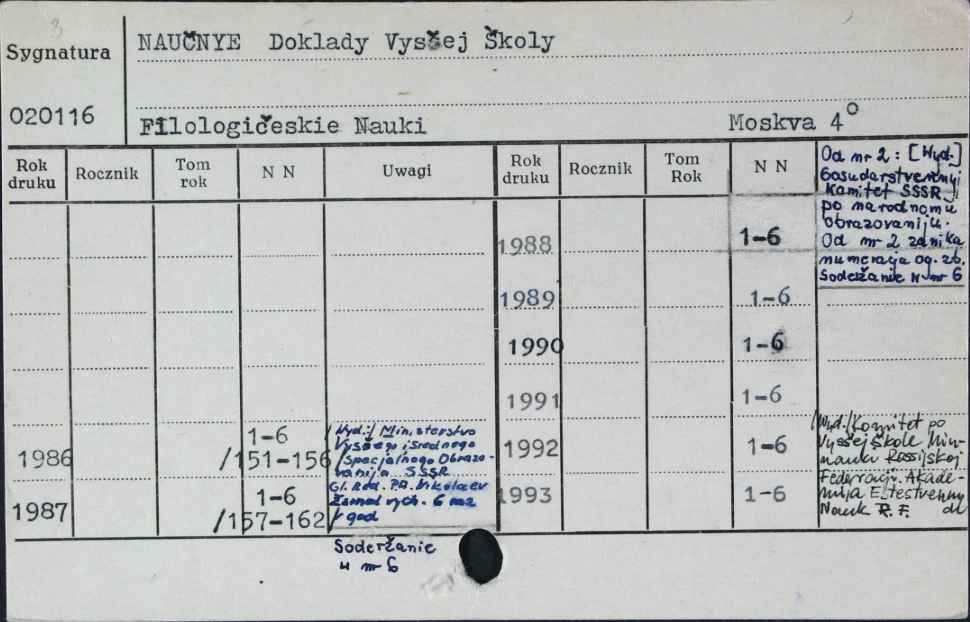 3
Sygnatura
NAUČNYE Doklady Vysšej Školy
020116
Filologičeskie Nauki Moskva 4°
Rok druku Rocznik Tom rok N N Uwagi Rok druku Rocznik Tom Rok N N
Od nr 2: [Wyd.]
Gosudarstvennyj
Komitet SSSR
po narodnomu
obrazovaniju.
Od nr 2 zanika
numeracja og. zb.
Soderžanie w nr 6
1988 1-6
1989 1-6
1990 1-6
1991 1-6
1986 1-6
/151-156/
/Wyd.:/ Ministerstvo
Vysšego i Srednego
Specjalnogo Obrazo-
vanija SSSR
Gl. Red. P.A. Nikolaev
Žurnal vych. 6 raz
v god
1987 1-6
/157-162/
1992 1-6
1993 1-6
/Wyd./ Komitet po
Vysšej Škole Min.
nauki Rossijskoj
Federacji. Akade-
mija Estestvennych
Nauk R.F.
Soderžanie
w nr 6